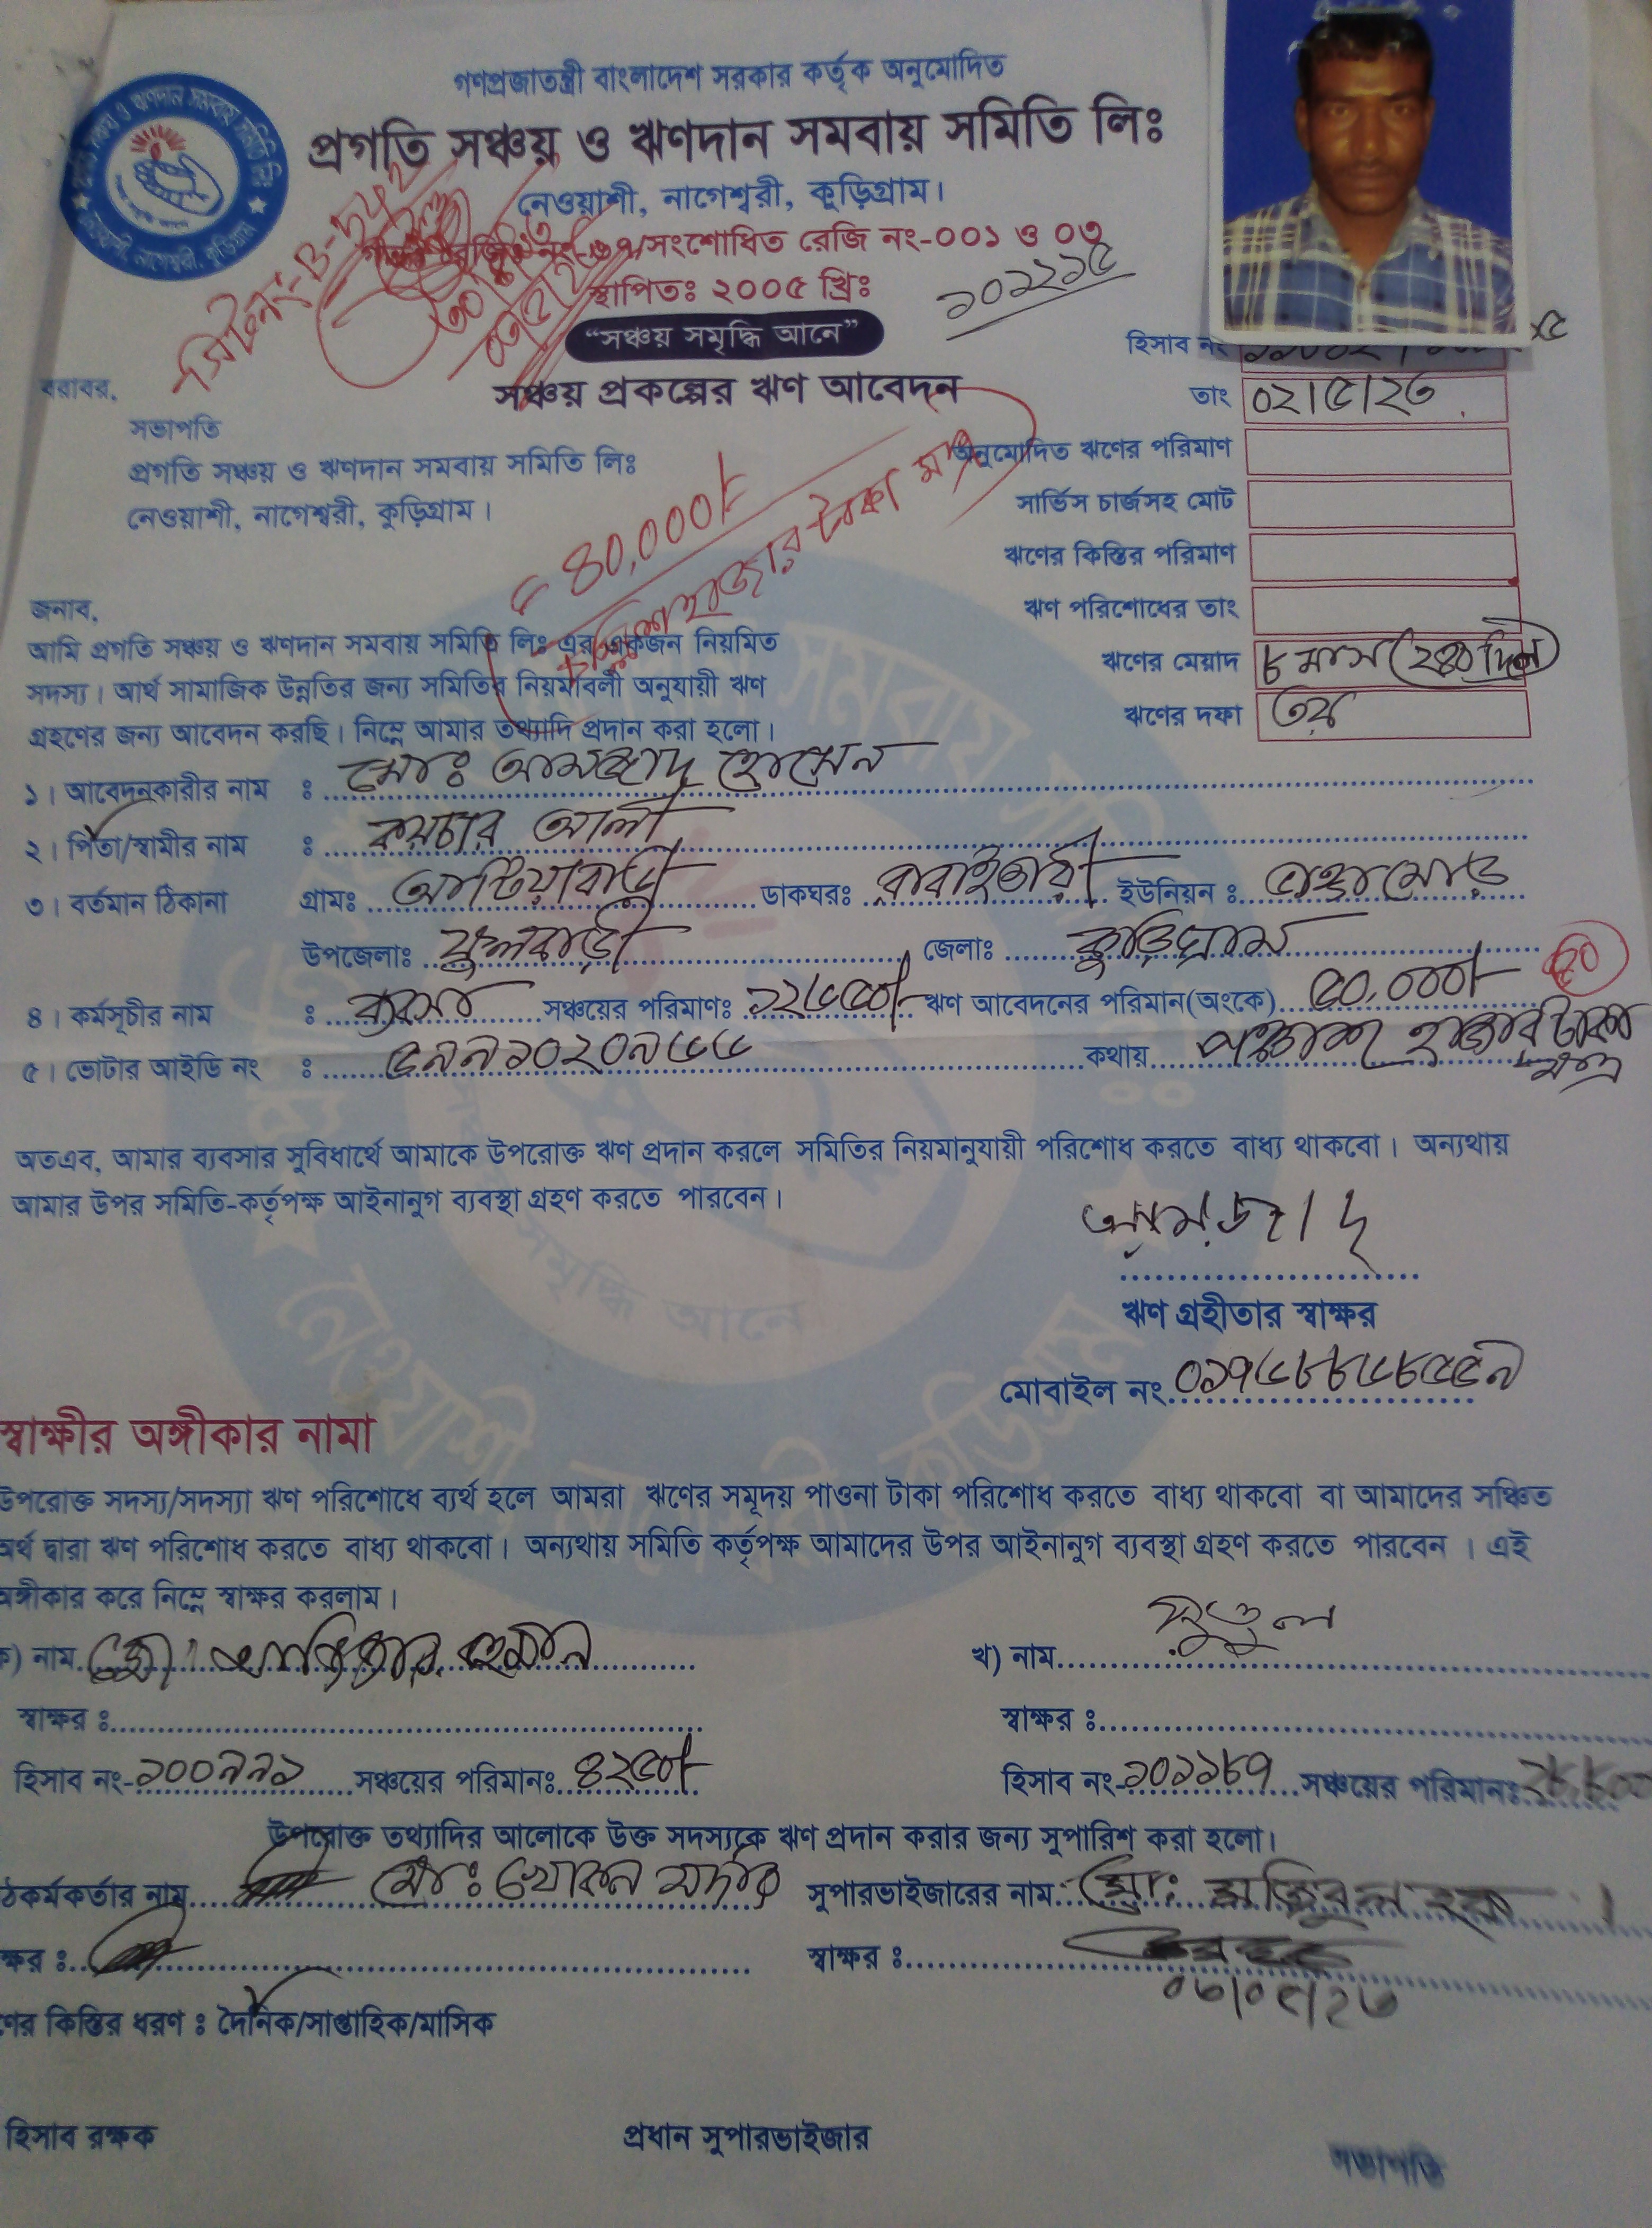 গণপ্রজাতন্ত্রী বাংলাদেশ সরকার কর্তৃক অনুমোদিত
প্রগতি সঞ্চয় ও ঋণদান সমবায় সমিতি লিঃ
নেওয়াশী, নাগেশ্বরী, কুড়িগ্রাম।
সংশোধিত রেজি নং-০০১ ও ০৩
স্থাপিতঃ ২০০৫ খ্রিঃ
১০১২১৫
“সঞ্চয় সমৃদ্ধি আনে”
হিসাব নং
সঞ্চয় প্রকল্পের ঋণ আবেদন
তাং ০২/৫/২৩
বরাবর,
সভাপতি
প্রগতি সঞ্চয় ও ঋণদান সমবায় সমিতি লিঃ
নেওয়াশী, নাগেশ্বরী, কুড়িগ্রাম।
অনুমোদিত ঋণের পরিমাণ
সার্ভিস চার্জসহ মোট
ঋণের কিস্তির পরিমাণ
ঋণ পরিশোধের তাং
ঋণের মেয়াদ ৮ মাস (২৪০ দিন)
ঋণের দফা ৩য়
৪০,০০০/-
চল্লিশ হাজার টাকা মাত্র
জনাব,
আমি প্রগতি সঞ্চয় ও ঋণদান সমবায় সমিতি লিঃ এর একজন নিয়মিত
সদস্য। আর্থ সামাজিক উন্নতির জন্য সমিতির নিয়মাবলী অনুযায়ী ঋণ
গ্রহণের জন্য আবেদন করছি। নিম্নে আমার তথ্যাদি প্রদান করা হলো।
১। আবেদনকারীর নাম ঃ মোঃ আমজাদ হোসেন
২। পিতা/স্বামীর নাম ঃ কয়চার আলী
৩। বর্তমান ঠিকানা গ্রামঃ আটিয়াবাড়ী ডাকঘরঃ রাবাইতারী ইউনিয়ন ঃ ভাঙ্গামোড়
উপজেলাঃ ফুলবাড়ী জেলাঃ কুড়িগ্রাম
৪। কর্মসূচীর নাম ঃ ব্যবসা সঞ্চয়ের পরিমাণঃ ১২৬৫০/- ঋণ আবেদনের পরিমান(অংকে) ৫০,০০০/-
৫। ভোটার আইডি নং ঃ ৫৯৯১০২০৯৬৬ কথায় পঞ্চাশ হাজার টাকা মাত্র
অতএব, আমার ব্যবসার সুবিধার্থে আমাকে উপরোক্ত ঋণ প্রদান করলে সমিতির নিয়মানুযায়ী পরিশোধ করতে বাধ্য থাকবো। অন্যথায়
আমার উপর সমিতি-কর্তৃপক্ষ আইনানুগ ব্যবস্থা গ্রহণ করতে পারবেন।
আমজাদ
ঋণ গ্রহীতার স্বাক্ষর
মোবাইল নং ০১৭৬৮৮৬৮৫৫৯
স্বাক্ষীর অঙ্গীকার নামা
উপরোক্ত সদস্য/সদস্যা ঋণ পরিশোধে ব্যর্থ হলে আমরা ঋণের সমূদয় পাওনা টাকা পরিশোধ করতে বাধ্য থাকবো বা আমাদের সঞ্চিত
অর্থ দ্বারা ঋণ পরিশোধ করতে বাধ্য থাকবো। অন্যথায় সমিতি কর্তৃপক্ষ আমাদের উপর আইনানুগ ব্যবস্থা গ্রহণ করতে পারবেন । এই
অঙ্গীকার করে নিম্নে স্বাক্ষর করলাম।
ক) নাম মোঃ রহমান খ) নাম পুতুল
স্বাক্ষর ঃ স্বাক্ষর ঃ
হিসাব নং-১০০৯৯১ সঞ্চয়ের পরিমানঃ ৪২৫০/- হিসাব নং-১০১১৮৭ সঞ্চয়ের পরিমানঃ
উপরোক্ত তথ্যাদির আলোকে উক্ত সদস্যকে ঋণ প্রদান করার জন্য সুপারিশ করা হলো।
ঠকর্মকর্তার নাম মোঃ খোকন সুপারভাইজারের নাম মোঃ হক
ক্ষর ঃ স্বাক্ষর ঃ
ণের কিস্তির ধরণ ঃ দৈনিক/সাপ্তাহিক/মাসিক
হিসাব রক্ষক প্রধান সুপারভাইজার সভাপতি